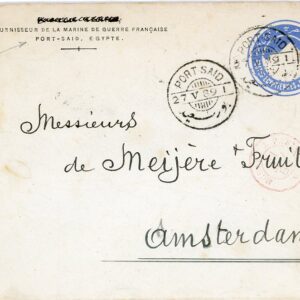 FOURNISSEUR DE LA MARINE DE GUERRE FRANÇAISE
PORT-SAID, EGYPTE.
PORT SAID
27 V 89 I
بورسعيد
PORT SAID
Messieurs
de Meijère & Fruit
Amsterdam